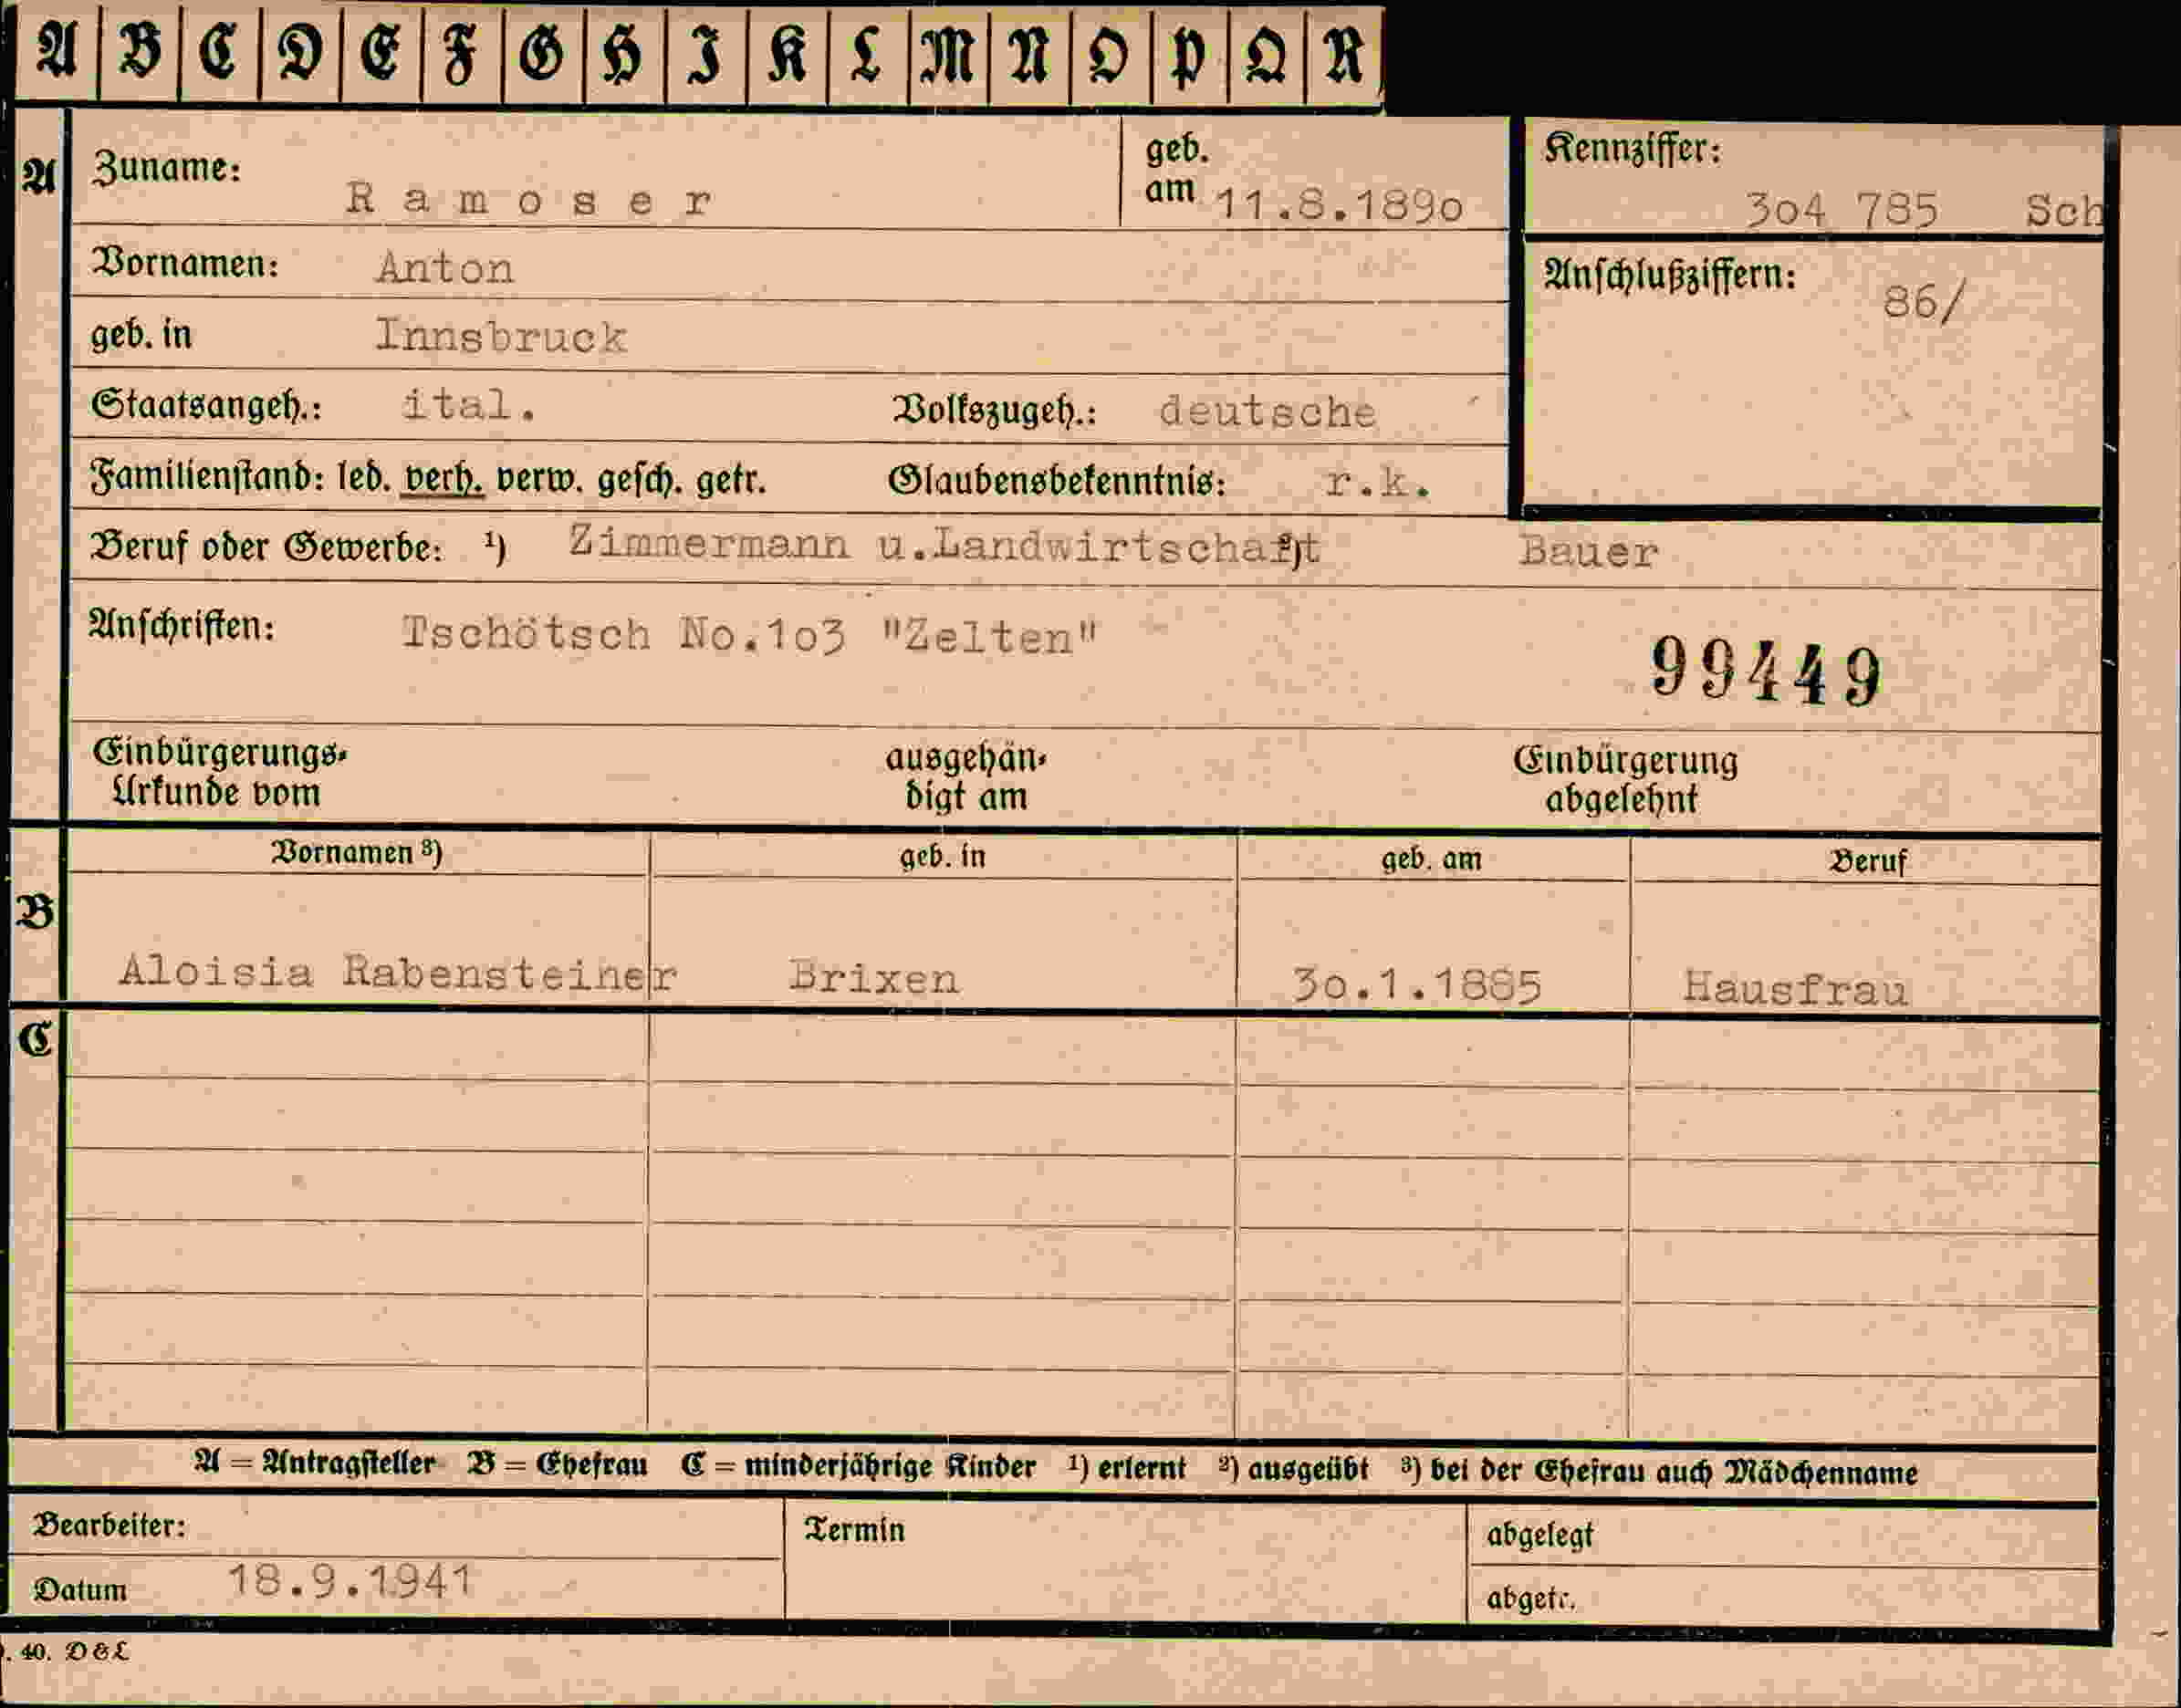 A B C D E F G H I K L M N O P Q R
A Zuname: Ramoser geb. am 11.8.1890
Kennziffer: 304 785 Sch
Vornamen: Anton
Anschlußziffern: 86/
geb. in Innsbruck
Staatsangeh.: ital. Volkszugeh.: deutsche
Familienstand: led. verh. verw. gesch. getr. Glaubensbekenntnis: r.k.
Beruf oder Gewerbe: ¹) Zimmermann u.Landwirtschaft ²) Bauer
Anschriften: Tschötsch No.103 "Zelten"
99449
Einbürgerungs- ausgehän- Einbürgerung
Urkunde vom digt am abgelehnt
Vornamen ³) geb. in geb. am Beruf
B
Aloisia Rabensteiner Brixen 30.1.1885 Hausfrau
C
A = Antragsteller B = Ehefrau C = minderjährige Kinder ¹) erlernt ²) ausgeübt ³) bei der Ehefrau auch Mädchenname
Bearbeiter: Termin abgelegt
Datum 18.9.1941 abgetr.
. 40. D & L